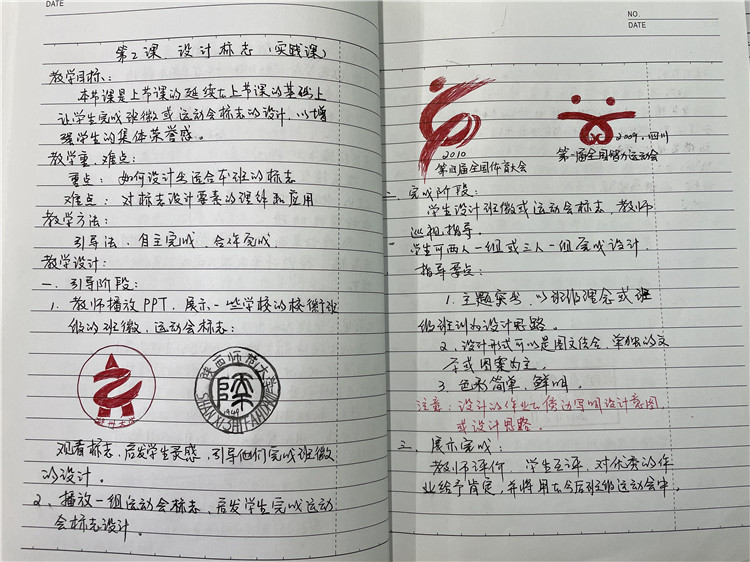 DATE
第2课 设计标志（实践课）
教学目标：
本节课是上节课的延续在上节课的基础上
让学生完成班徽或运动会标志的设计，以增
强学生的集体荣誉感。
教学重、难点：
重点：如何设计出适合本班的标志
难点：对标志设计要素的理解和应用
教学方法：
引导法、自主完成、合作完成
教学设计：
一、引导阶段：
1、教师播放PPT，展示一些学校的校徽班
级的班徽、运动会标志：
郑州大学
陕西师范大学
1944
SHANXI SHIFAN DAXUE
观看标志，启发学生灵感，引导他们完成班徽
的设计。
2、播放一组运动会标志，启发学生完成运动
会标志设计。
NO.
DATE
2010
第四届全国体育大会
2009，四川
第一届全国智力运动会
二、完成阶段：
学生设计班徽或运动会标志，教师
巡视指导。
学生可两人一组或三人一组完成设计
指导要点：
1、主题突出，以班级理念或班
级班训为设计思路。
2、设计形式可以是图文结合、单独的文
字或图案为主。
3、色彩简单、鲜明。
注意：设计的作业上侧边写明设计意图
或设计思路。
三、展示完成：
教师评价，学生互评，对优秀的作
业给予肯定，并将用在今后班级运动会中。